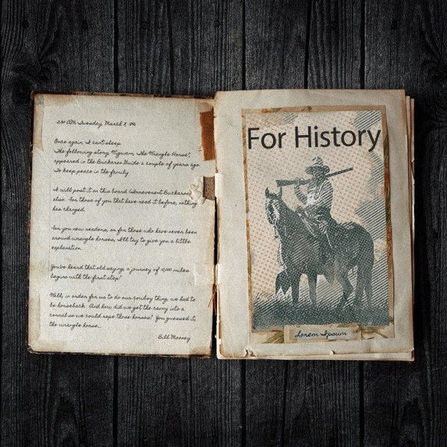 2:30 AM Tuesday, March 2
Once again, I can't sleep.
The following story, Wigwam, The Wrangle Horse,
appeared in the Buckaroo Guide a couple of years ago.
To keep peace in the family
I will post it on this board
else. For those of you that have read it before, nothing
has changed.
For you new readers, or for those who have never been
around wrangle horses, I'll try to give you a little
explanation.
You've heard that old saying a journey of 1000 miles
begins with the first step?
Well, in order for us to do our cowboy thing, we had to
be horseback. And how did we get the cavvy into a
corral so we could rope those horses? You guessed it
the wrangle horse.
Bill Moosey
For History
Lorem Ipsum